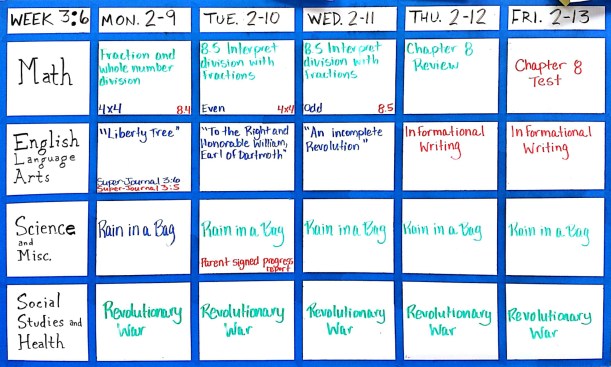 WEEK 3:6 MON. 2-9 TUE. 2-10 WED. 2-11 THU. 2-12 FRI. 2-13
Math
Fraction and
whole number
division
4x4 8.4
8.5 Interpret
division with
fractions
Even 4x4
8.5 Interpret
division with
fractions
Odd 8.5
Chapter 8
Review
Chapter 8
Test
English
Language
Arts
"Liberty Tree"
Super-Journal 3:6
Super-Journal 3:5
"To the Right and
Honorable William,
Earl of Dartmoth"
"An incomplete
Revolution"
Informational
Writing
Informational
Writing
Science
and
Misc.
Rain in a Bag
Rain in a Bag
Parent signed progress
report
Rain in a Bag
Rain in a Bag
Rain in a Bag
Social
Studies and
Health
Revolutionary
War
Revolutionary
War
Revolutionary
War
Revolutionary
War
Revolutionary
War